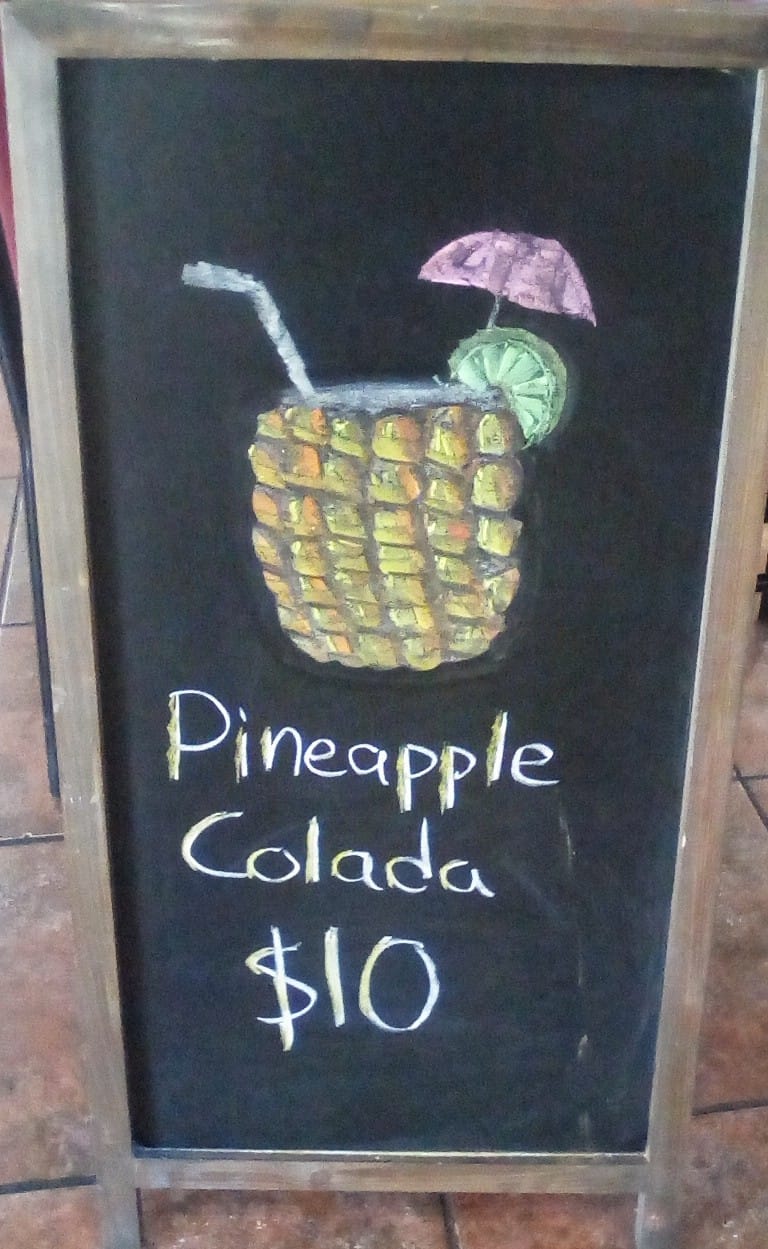 Pineapple
Colada
$10